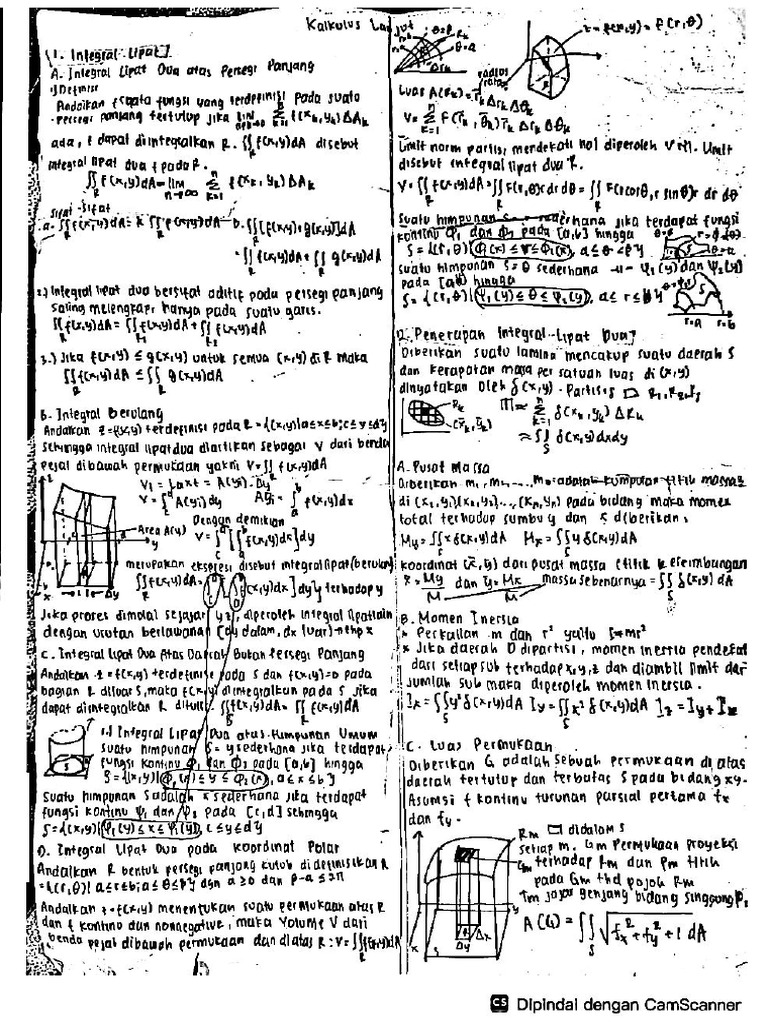 Kalkulus Lanjut
1. Integral Lipat
A. Integral Lipat Dua atas Persegi Panjang
1) Definisi
Andaikan f suatu fungsi yang terdefinisi pada suatu
persegi panjang tertutup jika lim Σ f(x̄ₖ, ȳₖ) ΔAₖ
ada, f dapat diintegralkan R. ∬ f(x,y)dA disebut
integral lipat dua f pada R.
∬ f(x,y)dA = lim Σ f(x̄ₖ, ȳₖ) ΔAₖ
Sifat-Sifat
a. ∬ f(x,y)dA = k ∬ f(x,y)dA b. ∬[f(x,y)+g(x,y)]dA
= ∬ f(x,y)dA + ∬ g(x,y)dA
2.) Integral lipat dua bersifat aditif pada persegi panjang
saling melengkapi hanya pada suatu garis.
∬ f(x,y)dA = ∬ f(x,y)dA + ∬ f(x,y)dA
3.) Jika f(x,y) ≤ g(x,y) untuk semua (x,y) di R maka
∬ f(x,y)dA ≤ ∬ g(x,y)dA
B. Integral Berulang
Andaikan z=f(x,y) terdefinisi pada R = {(x,y)|a≤x≤b; c≤y≤d}
Sehingga integral lipat dua diartikan sebagai V dari benda
pejal dibawah permukaan yakni V=∬ f(x,y)dA
V = ∫ A(y) dy A(y) = ∫ f(x,y)dx
Area A(y)
Dengan demikian
V = ∫[∫ f(x,y)dx]dy
merupakan ekspresi disebut integral lipat (berulang)
∬ f(x,y)dA = ∫[∫ f(x,y)dx]dy terhadap y
Jika proses dimulai sejajar yz, diperoleh integral lipat lain
dengan urutan berlawanan [dy dalam, dx luar] → thp x
C. Integral Lipat Dua Atas Daerah Bukan Persegi Panjang
Andaikan z = f(x,y) terdefinisi pada S dan f(x,y)=0 pada
bagian R diluar S, maka f(x,y) diintegralkan pada S jika
dapat diintegralkan R ditulis ∬ f(x,y)dA = ∬ f(x,y)dA
1.) Integral Lipat Dua atas Himpunan Umum
suatu himpunan S = y sederhana jika terdapat
fungsi kontinu φ₁ dan φ₂ pada [a,b] hingga
S={(x,y)|φ₁(x) ≤ y ≤ φ₂(x), a≤x≤b}
Suatu himpunan S adalah x sederhana jika terdapat
fungsi kontinu ψ₁ dan ψ₂ pada [c,d] sehingga
S={(x,y)|ψ₁(y) ≤ x ≤ ψ₂(y), c≤y≤d}
D. Integral Lipat Dua pada Koordinat Polar
Andaikan R bentuk persegi panjang kutub didefinisikan R
={(r,θ)| a≤r≤b; α≤θ≤β} dgn a≥0 dan β-α≤2π
Andaikan z=f(x,y) menentukan suatu permukaan atas R
dan f kontinu dan nonnegative, maka Volume V dari
benda pejal dibawah permukaan dan diatas R : V=∬ f(x,y)dA
z = f(x,y) = F(r,θ)
Luas A(Rₖ) = r̄ₖ Δrₖ Δθₖ
V ≈ Σ F(r̄ₖ, θ̄ₖ) r̄ₖ Δrₖ Δθₖ
Limit norm partisi mendekati nol diperoleh V. Limit
disebut integral lipat dua R.
V = ∬ f(x,y)dA = ∬ F(r,θ)r dr dθ = ∬ F(r cosθ, r sinθ) r dr dθ
Suatu himpunan S = r sederhana jika terdapat fungsi
kontinu φ₁ dan φ₂ pada [a,b] hingga
suatu himpunan S = θ sederhana -u- ψ₁(y) dan ψ₂(y)
pada [a,b] hingga
S = {(r,θ)|ψ₁(y) ≤ θ ≤ ψ₂(y), a≤r≤b}
2. Penerapan Integral Lipat Dua
Diberikan suatu lamina mencakup suatu daerah S
dan kerapatan massa per satuan luas di (x,y)
dinyatakan oleh δ(x,y) - Partisi S
m ≈ Σ δ(x̄ₖ, ȳₖ) ΔRₖ
≈ ∬ δ(x,y)dxdy
A. Pusat Massa
Diberikan m₁, m₂, ... mₙ adalah kumpulan titik massa
di (x₁,y₁)(x₂,y₂)...,(xₙ,yₙ) pada bidang maka momen
total terhadap sumbu y dan x diberikan,
My = ∬ xδ(x,y)dA Mx = ∬ yδ(x,y)dA
koordinat (x̄,ȳ) dari pusat massa (titik keseimbangan
x̄ = My/M dan ȳ = Mx/M massa sebenarnya = ∬ δ(x,y)dA
B. Momen Inersia
* Perkalian m dan r² yaitu I=mr²
* Jika daerah D dipartisi, momen inertia pendekat
dari setiap sub terhadap x,y,z dan diambil limit dar
jumlah sub maka diperoleh momen inersia.
Ix = ∬ y² δ(x,y)dA Iy = ∬ x² δ(x,y)dA Iz = Iy + Ix
C. Luas Permukaan
Diberikan G adalah sebuah permukaan di atas
daerah tertutup dan terbatas S pada bidang xy.
Asumsi f kontinu turunan parsial pertama fx
dan fy.
Rm □ didalam S
Setiap m, Gm Permukaan proyeksi
terhadap Rm dan Pm titik
pada Gm thd pojok Rm
Tm jajar genjang bidang singgung P
A(G) = ∬ √(fx² + fy² + 1) dA
CS Dipindai dengan CamScanner